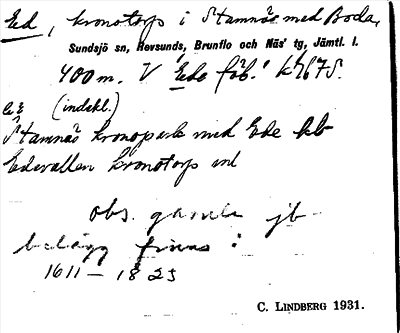 Ed, kronotorp i Stamnäs med Boda,
Sundsjö sn, Revsunds, Brunflo och Näs' tg, Jämtl. l.
400 m. V Ede fäb.
(indekl.)
Stamnäs kronopark med Ede kb
Edevallen kronotorp
obs. gamla jb
belägg finns:
1611 – 1825
C. LINDBERG 1931.